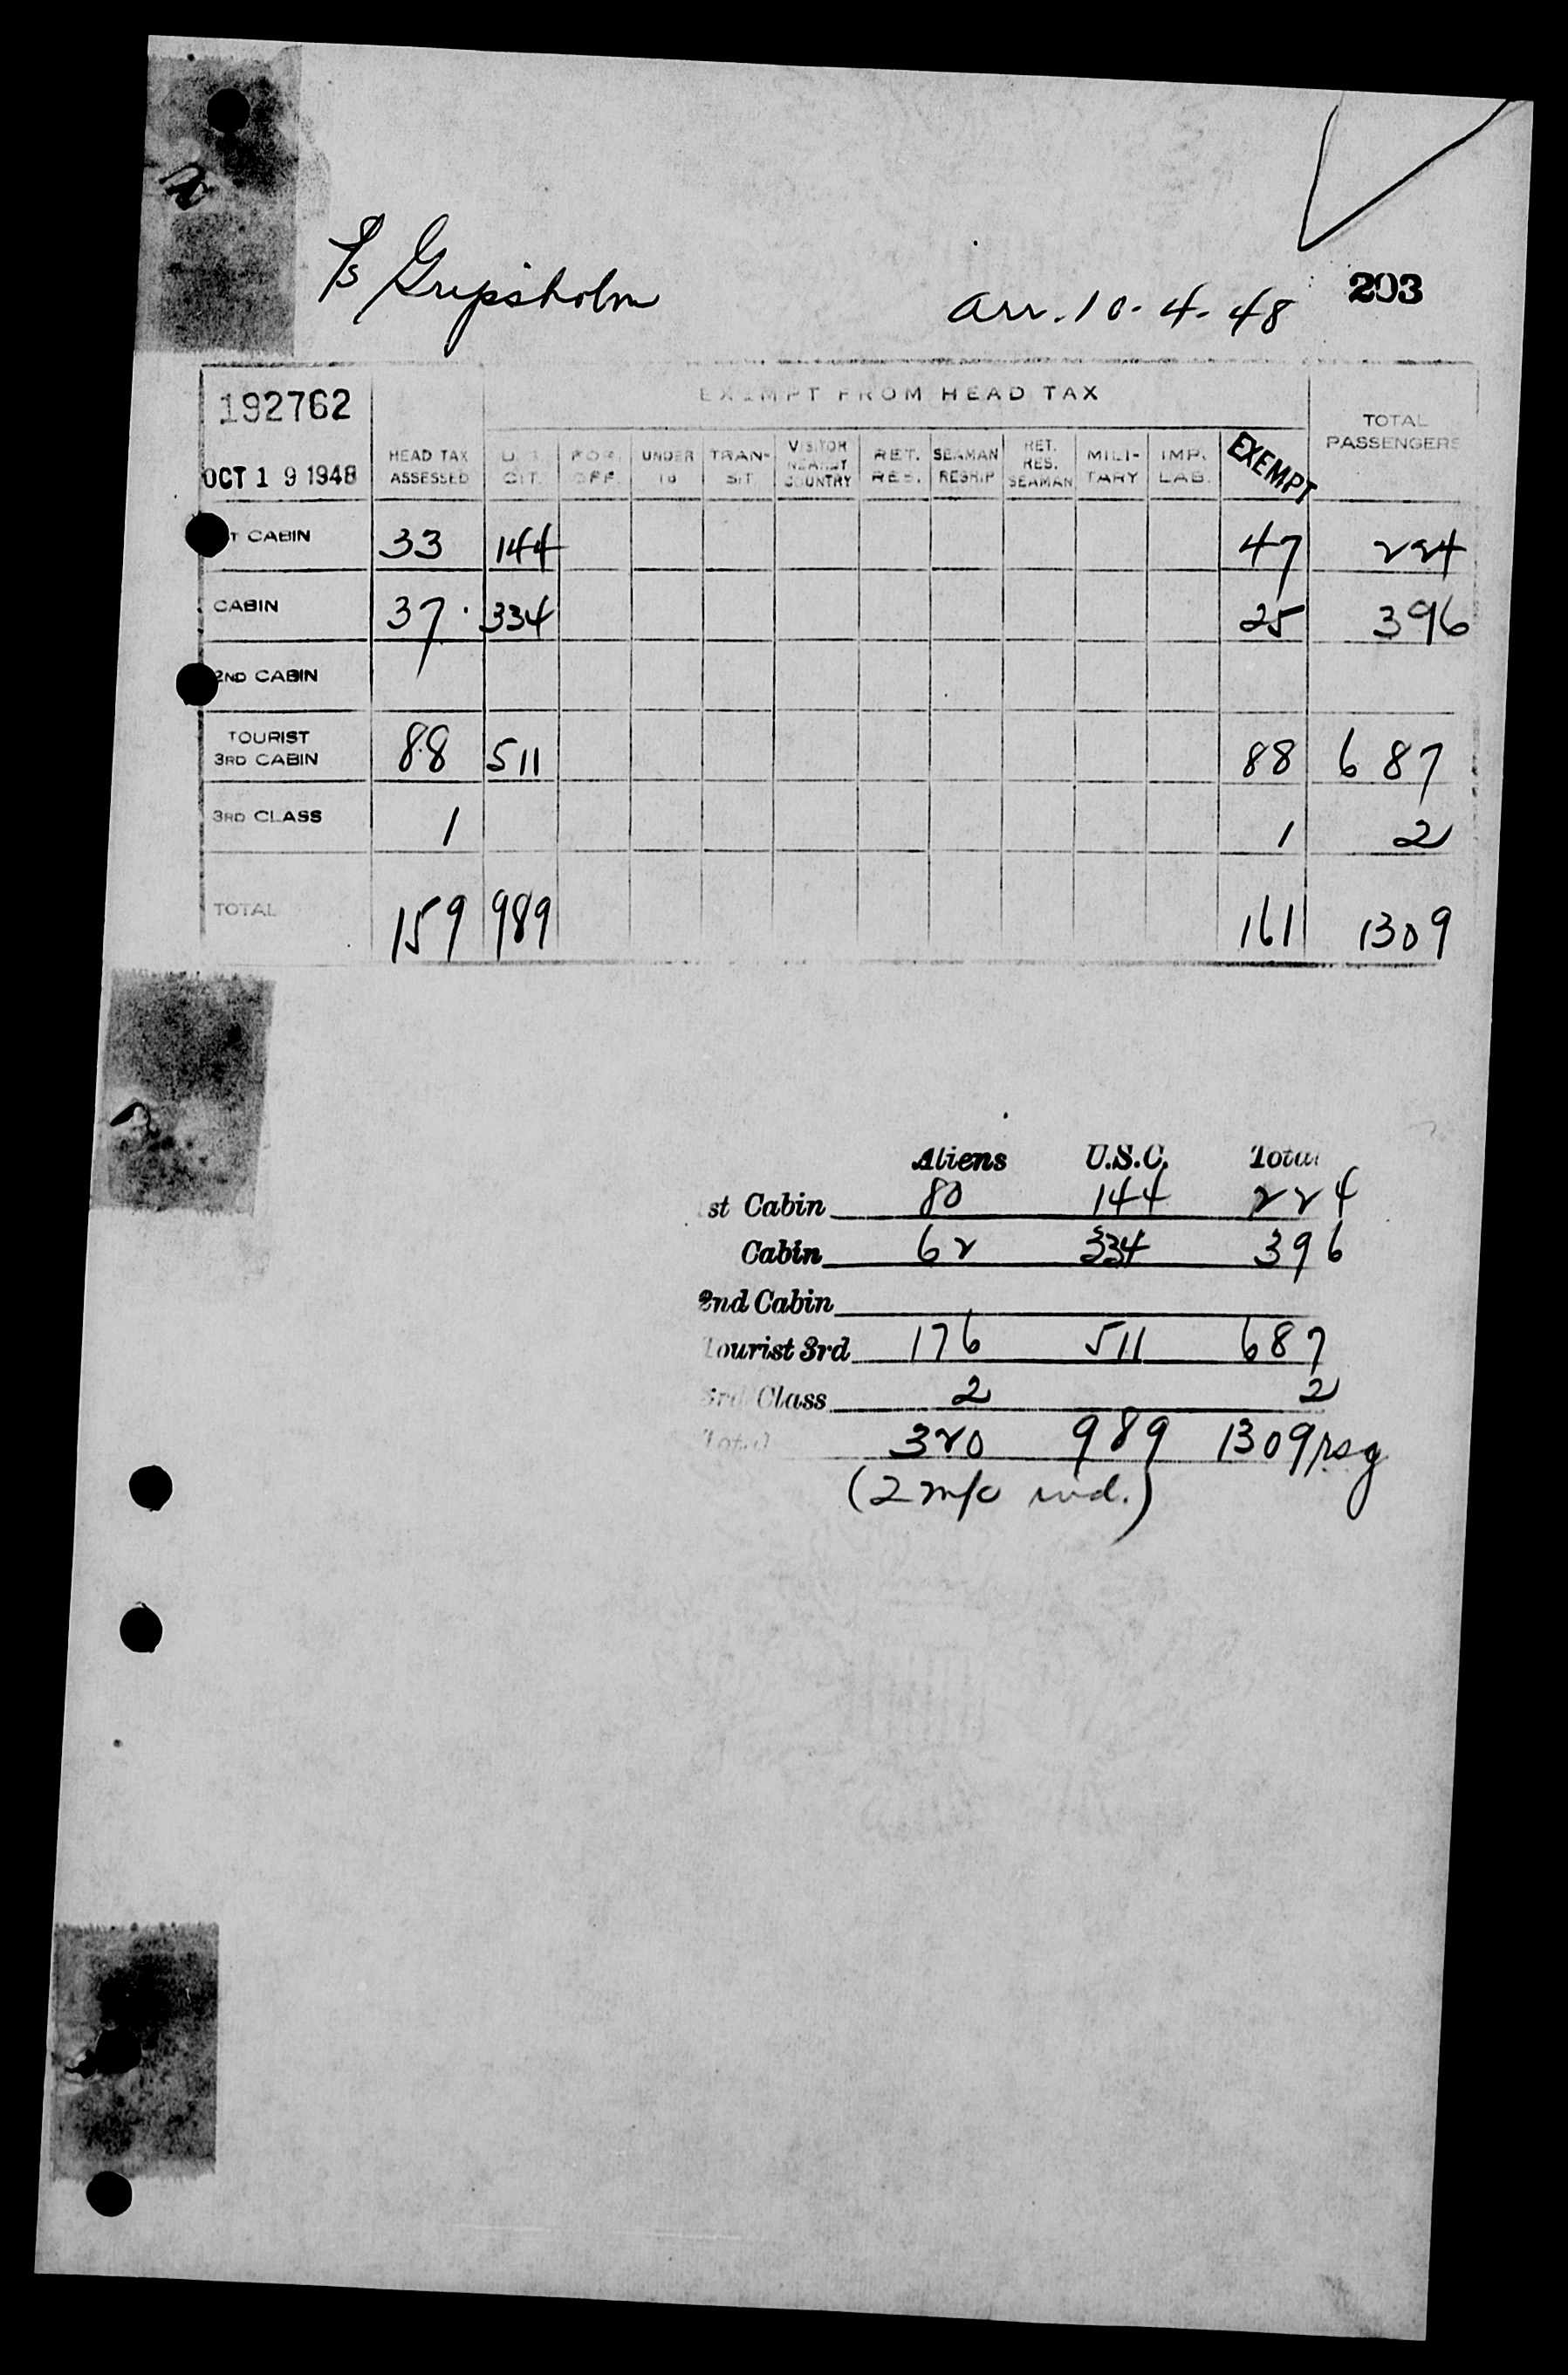 Gripsholm
arr. 10-4-48
203
192762
OCT 19 1948
EXEMPT FROM HEAD TAX
HEAD TAX ASSESSED
U.S. CIT.
FOR. OFF.
UNDER 16
TRANSIT
VISITOR NEAREST COUNTRY
RET. RES.
SEAMAN RESHIP
RET. RES. SEAMAN
MILITARY
IMP. LAB.
EXEMPT
TOTAL PASSENGERS
ST CABIN 33 144 47 224
CABIN 37 334 25 396
2ND CABIN
TOURIST
3RD CABIN 88 511 88 687
3RD CLASS 1 1 2
TOTAL 159 989 161 1309
Aliens U.S.C. Total
st Cabin 80 144 224
Cabin 62 334 396
2nd Cabin
Tourist 3rd 176 511 687
3rd Class 2 2
Total 320 989 1309 psg
(2 m/o